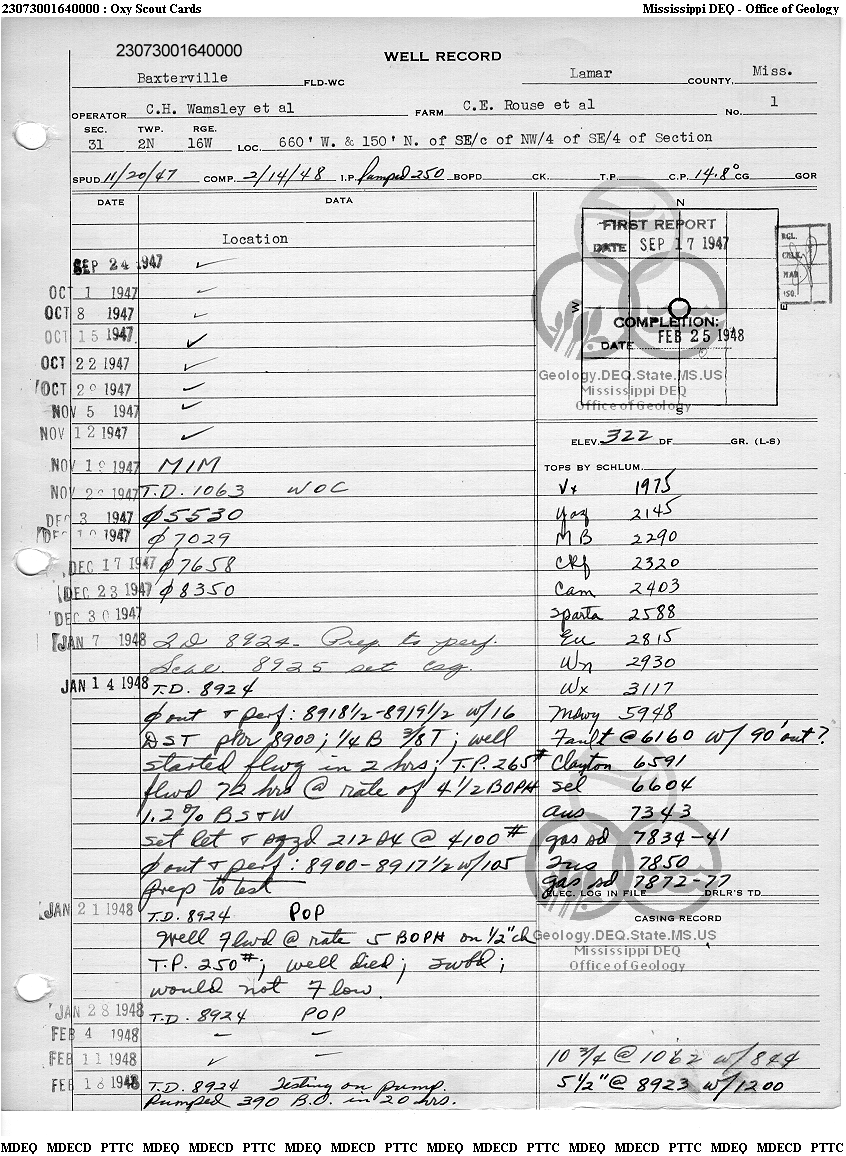 23073001640000 : Oxy Scout Cards
Mississippi DEQ - Office of Geology
23073001640000
WELL RECORD
Baxterville FLD-WC Lamar COUNTY, Miss.
OPERATOR C.H. Wamsley et al FARM C.E. Rouse et al No. 1
SEC. TWP. RGE.
31 2N 16W LOC. 660' W. & 150' N. of SE/c of NW/4 of SE/4 of Section
SPUD 11/20/47 COMP. 2/14/48 I.P. Pumped 250 BOPD CK. T.P. C.P. 14.8° CG GOR
DATE DATA
Location
SEP 24 1947 ✓
OCT 1 1947 ✓
OCT 8 1947 ✓
OCT 15 1947 ✓
OCT 22 1947 ✓
OCT 29 1947 ✓
NOV 5 1947 ✓
NOV 12 1947 ✓
NOV 19 1947 MIM
NOV 26 1947 T.D. 1063 WOC
DEC 3 1947 φ5530
DEC 10 1947 φ7029
DEC 17 1947 φ7658
DEC 23 1947 φ8350
DEC 30 1947
JAN 7 1948 TD 8924 - Prep. to perf.
8925 set csg.
JAN 14 1948 T.D. 8924
φ out + perf: 8918½-8919½ w/16
DST pkr 8900; ¼ B ⅜ T; well
started flwg in 2 hrs; T.P. 265#
flwd 72 hrs @ rate of 4½ BOPH
1.2% BS+W
set ret + sqzd 212 sx @ 4100#
φ out + perf: 8900-8917½ w/105
prep to test
JAN 21 1948 T.D. 8924 POP
Well flwd @ rate 5 BOPH on ½" ch
T.P. 250#; well died; swbd;
would not flow.
JAN 28 1948 T.D. 8924 POP
FEB 4 1948 - -
FEB 11 1948 ✓ -
FEB 18 1948 T.D. 8924 Testing on pump.
Pumped 390 B.O. in 20 hrs.
N
FIRST REPORT
DATE SEP 17 1947
W
E
COMPLETION:
DATE FEB 25 1948
S
Geology.DEQ.State.MS.US
Mississippi DEQ
Office of Geology
ELEV. 322 DF GR. (L-S)
TOPS BY SCHLUM.
Vx 1975
Yaz 2145
MB 2290
Ckf 2320
Cam 2403
Sparta 2588
Eu 2815
Wn 2930
Wx 3117
Mdwy 5948
Fault @ 6160 w/ 90' out?
Clayton 6591
Sel 6604
Aus 7343
gas sd 7834-41
Tus 7850
gas sd 7872-77
ELEC. LOG IN FILE DRLR'S TD
CASING RECORD
Geology.DEQ.State.MS.US
Mississippi DEQ
Office of Geology
10 ¾ @ 1062 w/ 844
5 ½" @ 8923 w/1200
MDEQ MDECD PTTC MDEQ MDECD PTTC MDEQ MDECD PTTC MDEQ MDECD PTTC MDEQ MDECD PTTC MDEQ MDECD PTTC